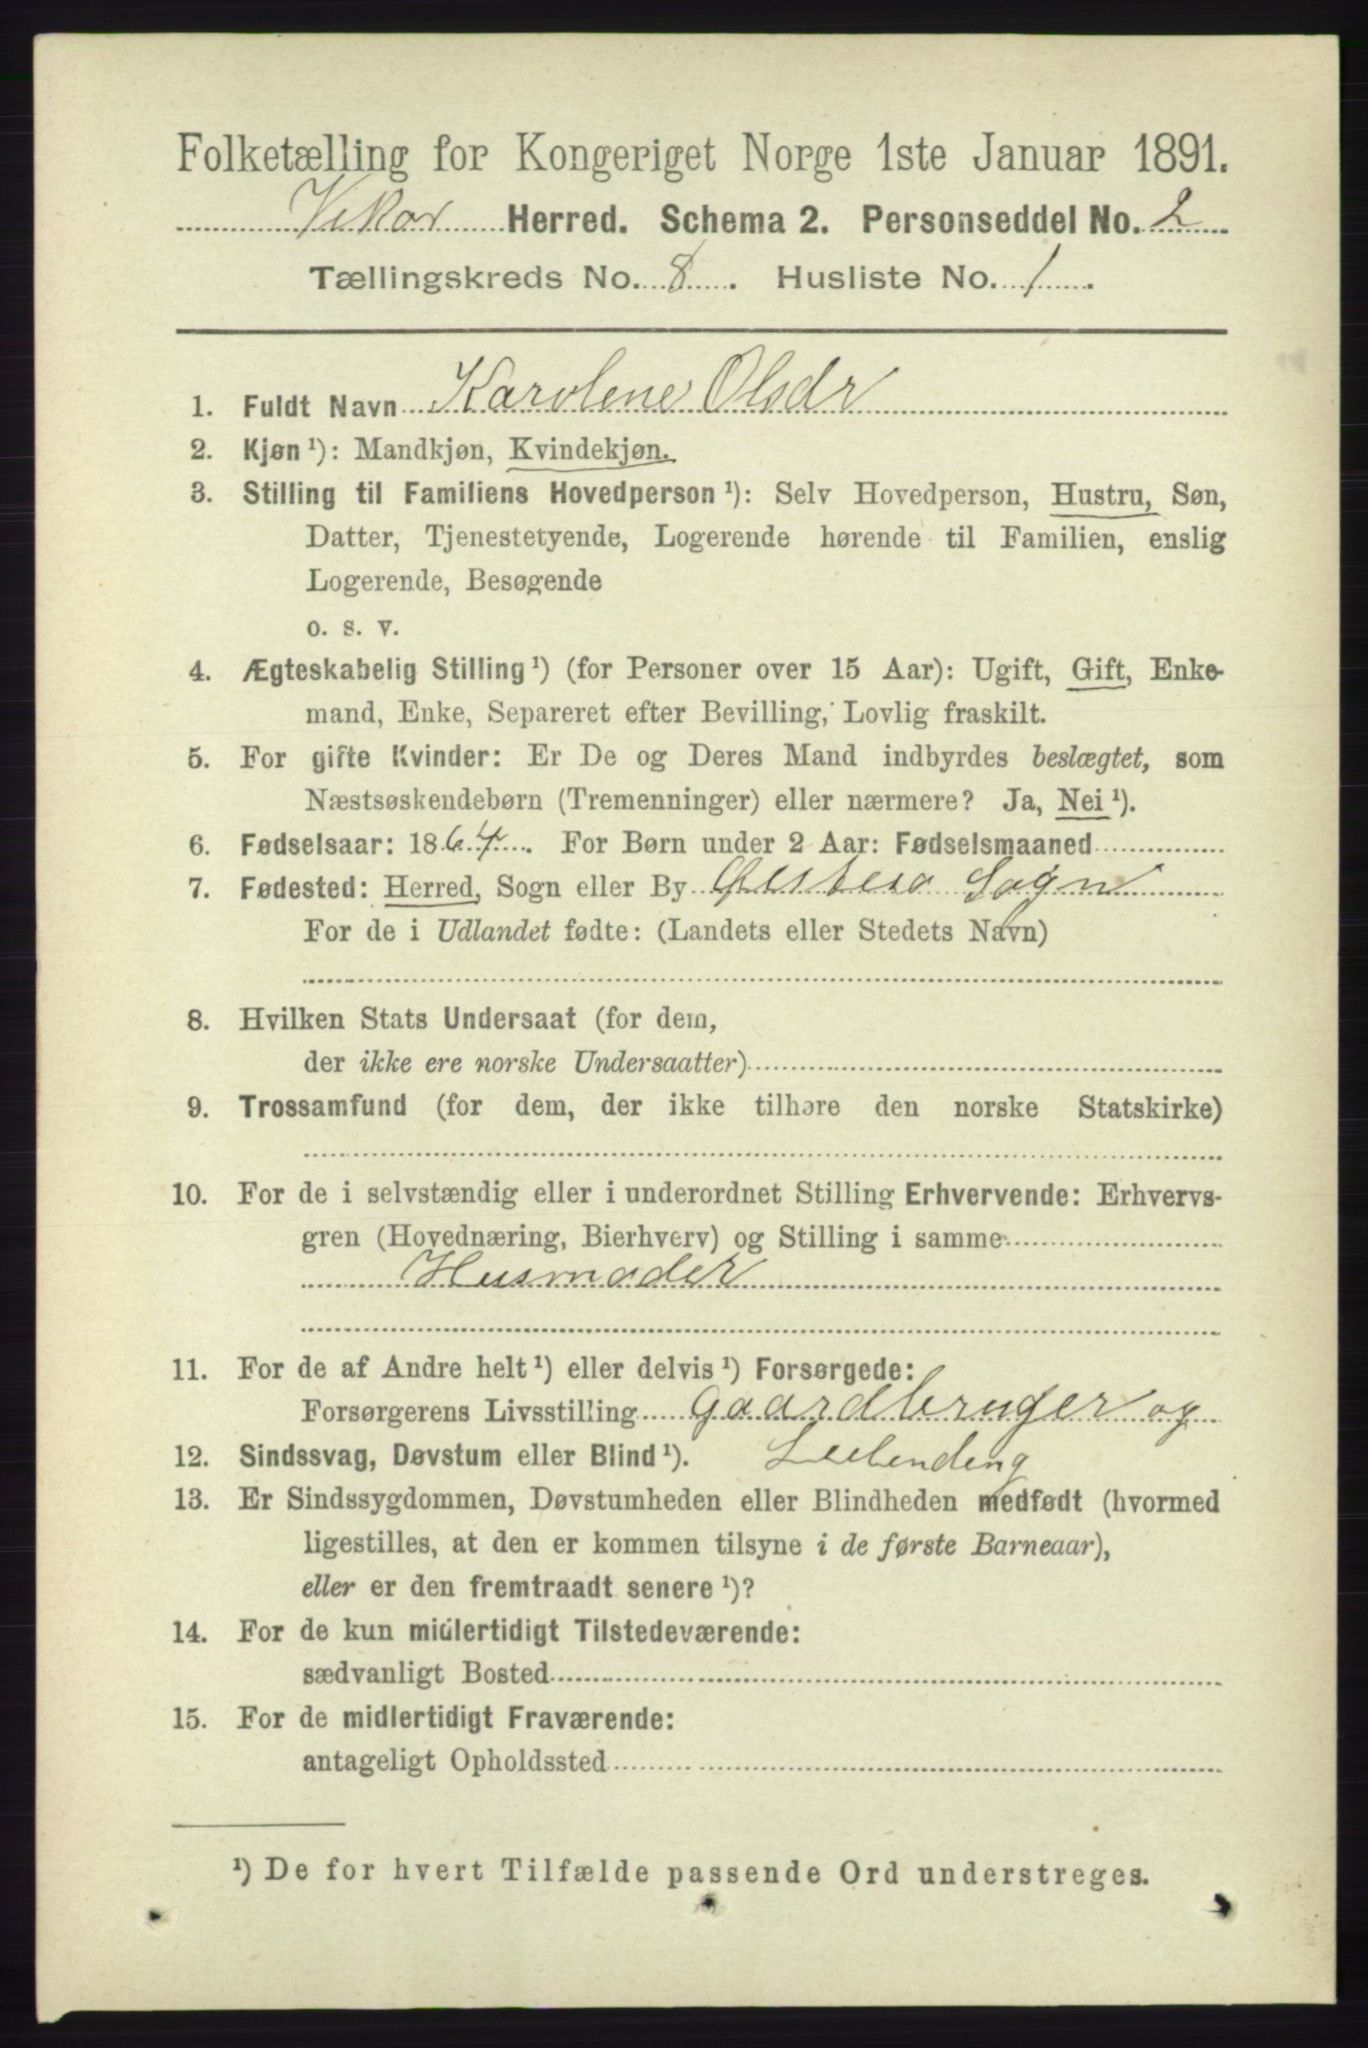 Folketælling for Kongeriget Norge 1ste Januar 1891.
Vikør Herred. Schema 2. Personseddel No. 2
Tællingskreds No. 8. Husliste No. 1.
1. Fuldt Navn Karolene Olsdr
2. Kjøn ¹): Mandkjøn, Kvindekjøn.
3. Stilling til Familiens Hovedperson ¹): Selv Hovedperson, Hustru, Søn,
Datter, Tjenestetyende, Logerende hørende til Familien, enslig
Logerende, Besøgende
o. s. v.
4. Ægteskabelig Stilling ¹) (for Personer over 15 Aar): Ugift, Gift, Enke-
mand, Enke, Separeret efter Bevilling, Lovlig fraskilt.
5. For gifte Kvinder: Er De og Deres Mand indbyrdes beslægtet, som
Næstsøskendebørn (Tremenninger) eller nærmere? Ja, Nei ¹).
6. Fødselsaar: 1864. For Børn under 2 Aar: Fødselsmaaned
7. Fødested: Herred, Sogn eller By Østesø Sogn
For de i Udlandet fødte: (Landets eller Stedets Navn)
8. Hvilken Stats Undersaat (for dem,
der ikke ere norske Undersaatter)
9. Trossamfund (for dem, der ikke tilhøre den norske Statskirke)
10. For de i selvstændig eller i underordnet Stilling Erhvervende: Erhvervs-
gren (Hovednæring, Bierhverv) og Stilling i samme
Husmoder
11. For de af Andre helt ¹) eller delvis ¹) Forsørgede:
Forsørgerens Livsstilling Gaardbruger og
12. Sindssvag, Døvstum eller Blind ¹). Leilending
13. Er Sindssygdommen, Døvstumheden eller Blindheden medfødt (hvormed
ligestilles, at den er kommen tilsyne i de første Barneaar),
eller er den fremtraadt senere ¹)?
14. For de kun midlertidigt Tilstedeværende:
sædvanligt Bosted
15. For de midlertidigt Fraværende:
antageligt Opholdssted
¹) De for hvert Tilfælde passende Ord understreges.